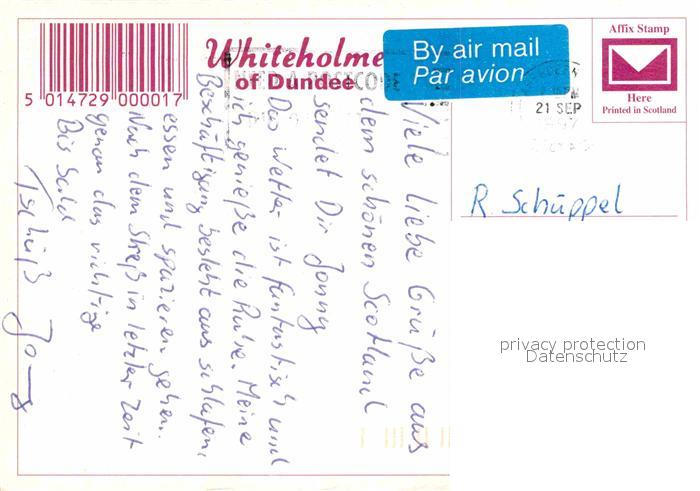 Whiteholme
of Dundee
5 014729 000017
By air mail
Par avion
21 SEP
Affix Stamp
Here
Printed in Scotland
R. Schüppel
privacy protection
Datenschutz
Viele liebe Grüße aus
dem schönen Scotland
sendet Dir Jonny
Das Wetter ist fantastisch und
ich genieße die Ruhe. Meine
Beschäftigung besteht aus schlafen,
essen und spazieren gehen.
Nach dem Streß in letzter Zeit
genau das richtige
Bis bald
Tschüß Jonny